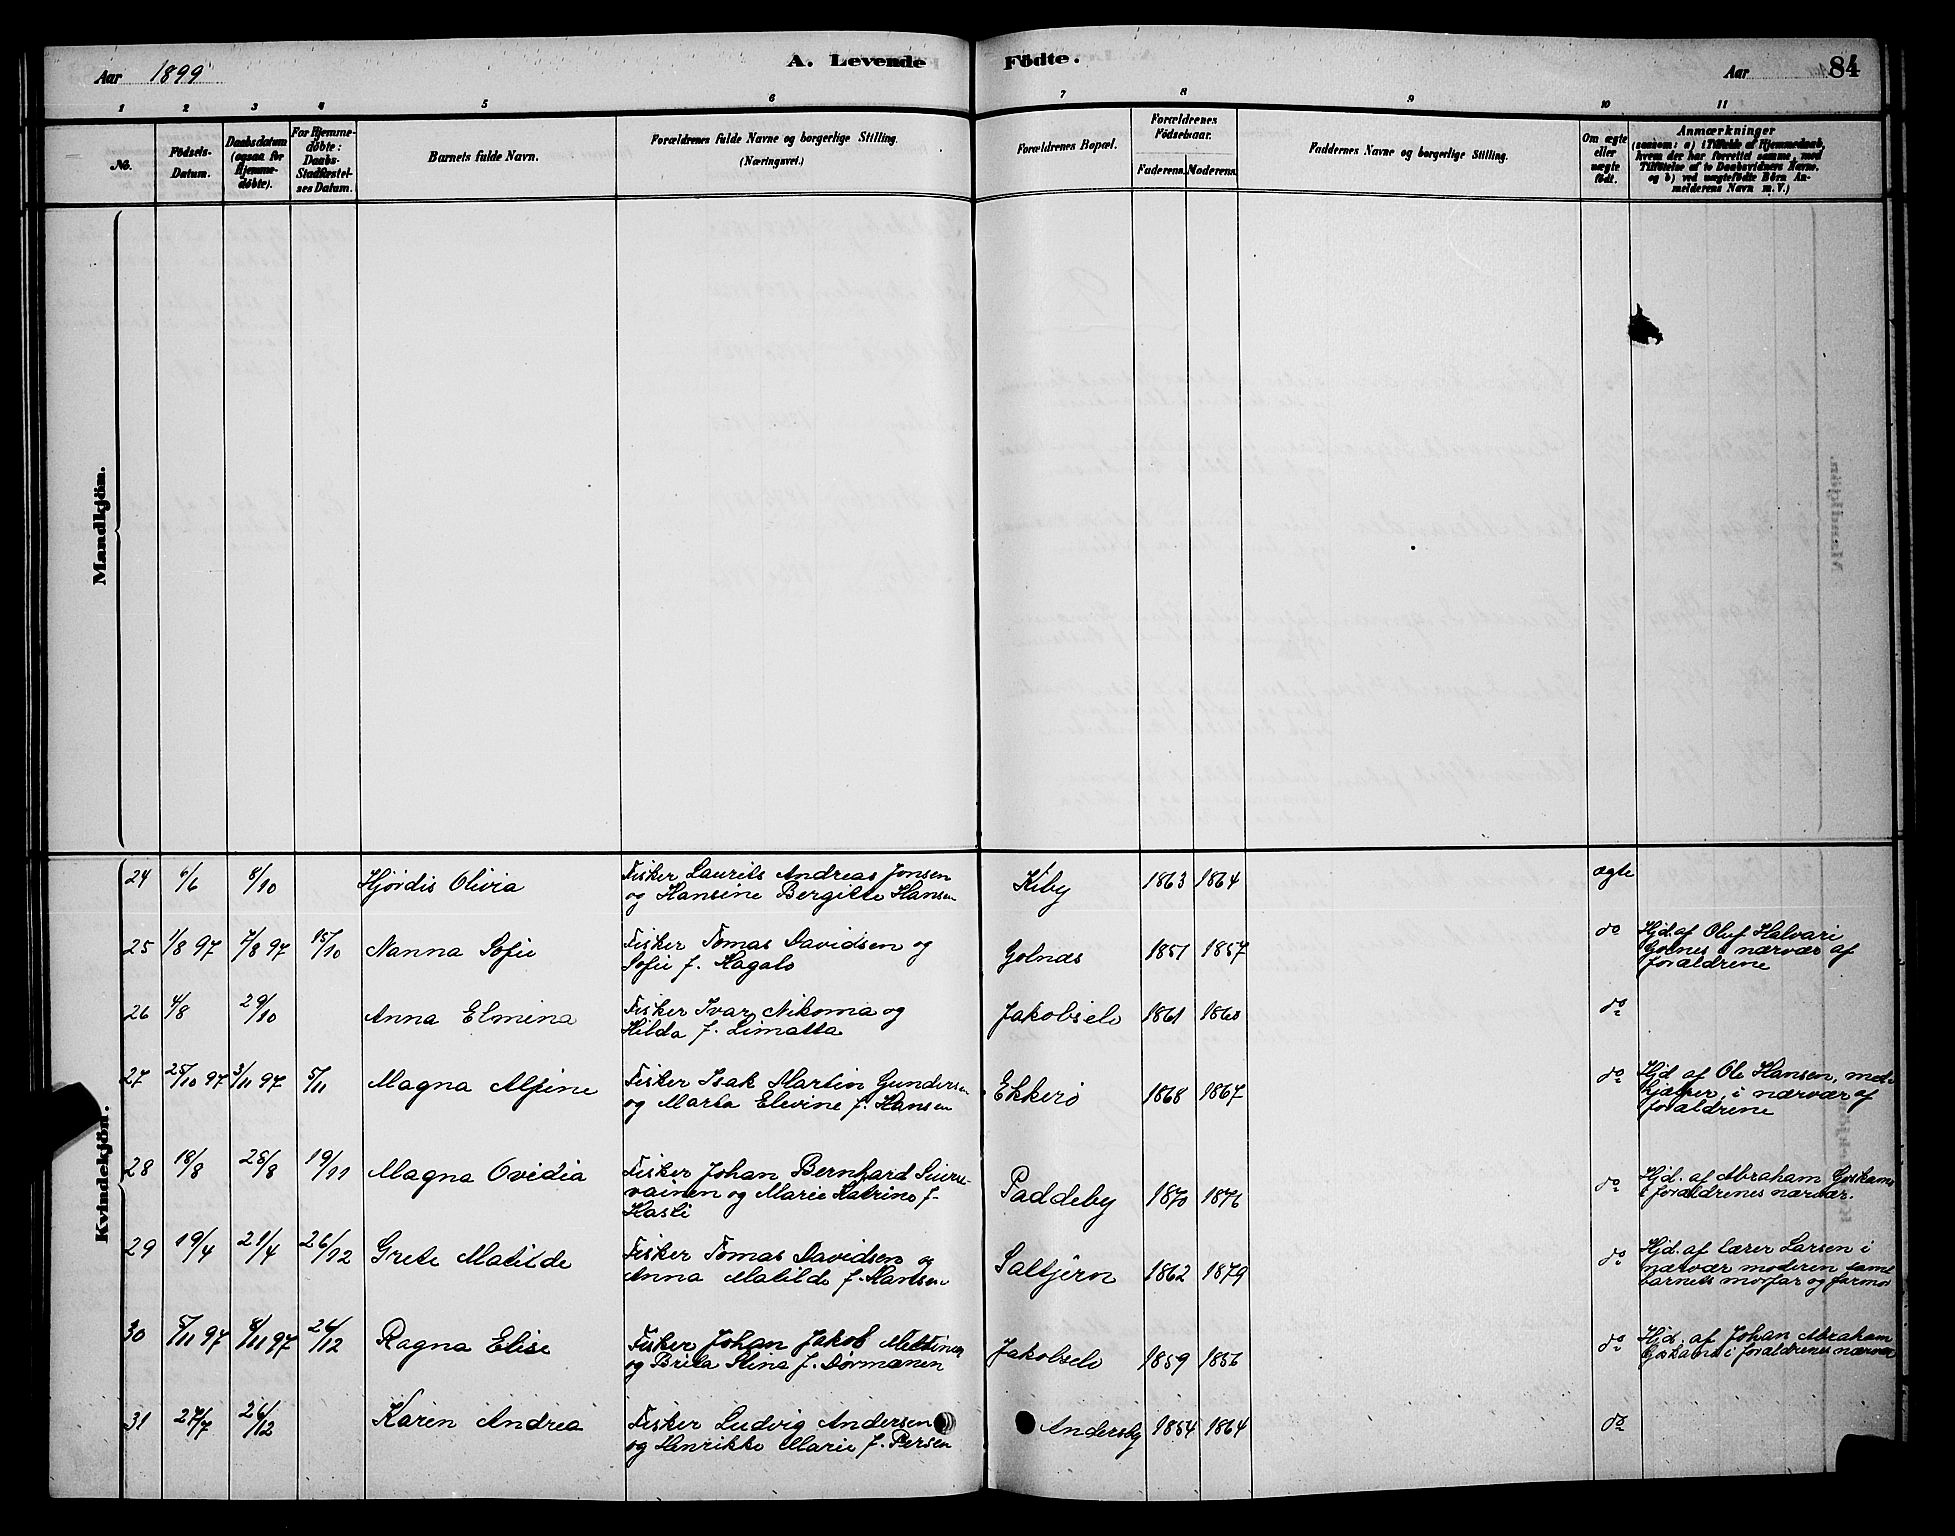 Aar 1899
A. Levende Födte.
Aar 84
1 2 3 4 5 6 7 8 9 10 11
No.
Födsels-
Datum.
Daabsdatum
(ogsaa for
Hjemme-
döbte).
For Hjemme-
döbte:
Daabs-
Stadfæstel-
ses Datum.
Barnets fulde Navn.
Forældrenes fulde Navne og borgerlige Stilling.
(Næringsvei.)
Forældrenes Bopæl.
Forældrenes
Födselsaar.
Faderens. Moderens.
Faddernes Navne og borgerlige Stilling.
Om ægte
eller
uægte
födt.
Anmærkninger
(saasom: a) i Tilfælde af Hjemmedaab,
hvem der har forrettet samme, med
Tilföielse af to Daabsvidners Navne,
og b) ved uægtefödte Börn An-
melderens Navn m. V.)
Mandkjön.
Kvindekjön.
24 6/6 8/10 Hjördis Olivia Fisker Laurits Andreas Jonsen
og Hansine Bergitte Hansen
Kiby 1863 1864 ægte
25 1/8 97 7/8 97 15/10 Nanna Sofie Fisker Tomas Davidsen og
Sofie f. Kagalo
Golnæs 1851 1857 do
Hjd. af Oluf Halvari
Golnes i nærvær af
forældrene
26 4/8 29/10 Anna Elmina Fisker Ivar Nikoma og
Hilda f. Limatta
Jakobselv 1861 1860 do
27 25/10 97 3/11 97 5/11 Magna Alfine Fisker Isak Martin Gundersen
og Marta Elevine f. Hansen
Ekkerö 1868 1867 do
Hjd. af Ole Hansen, med-
hjælper, i nærvær af
forældrene
28 18/8 28/8 19/11 Magna Ovidia Fisker Johan Bernhard
vainen og Marie Katrine f.
Paddeby 1870 1876 do
Hjd. af Abraham
i forældrenes nærvær.
29 19/4 21/4 26/12 Grete Matilde Fisker Tomas Davidsen og
Anna Matilde f. Hansen
Saltjern 1862 1879 do
Hjd. af lærer Larsen i
nærvær moderen samt
barnets morfar og farmor
30 5/11 97 8/11 97 26/12 Ragna Elise Fisker Johan Jakob
og Brita Stina f. Dørmænen
Jakobselv 1859 1856 do
Hjd. af Johan Abraham
i forældrenes nærvær
31 27/7 26/12 Karen Andrea Fisker Ludvig Andersen
og Henrikke Marie f. Persen
Andersby 1854 1864 do